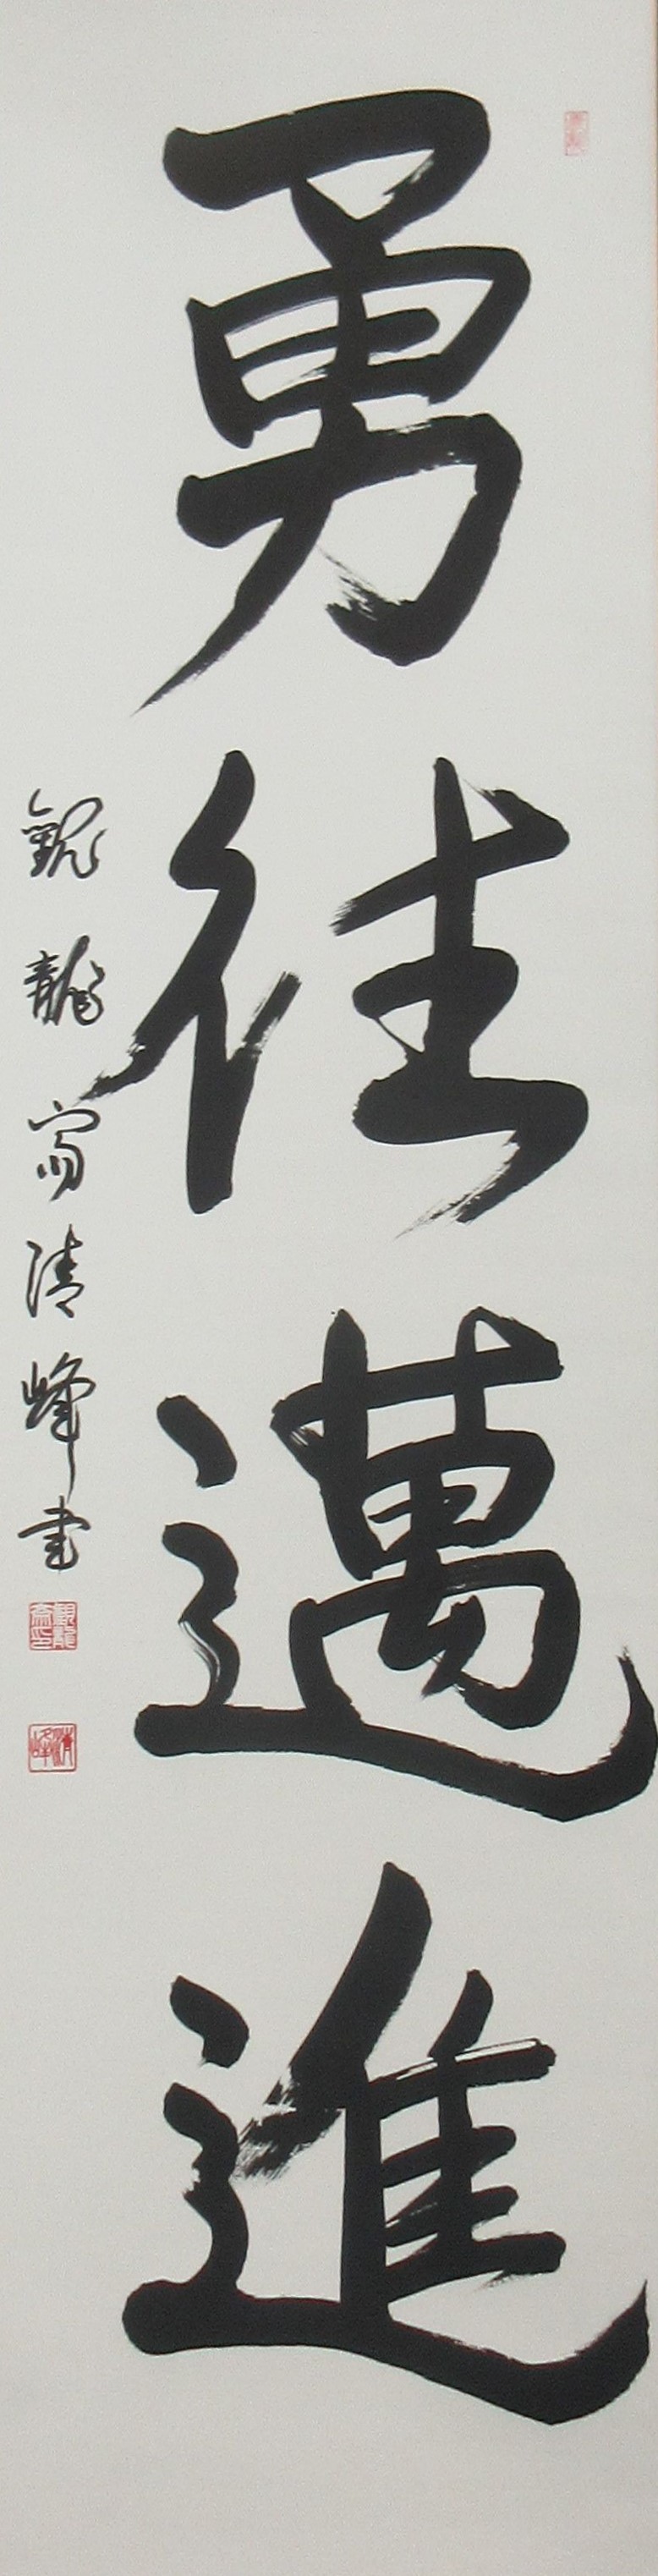 勇往邁進
觀龍窟清峰書